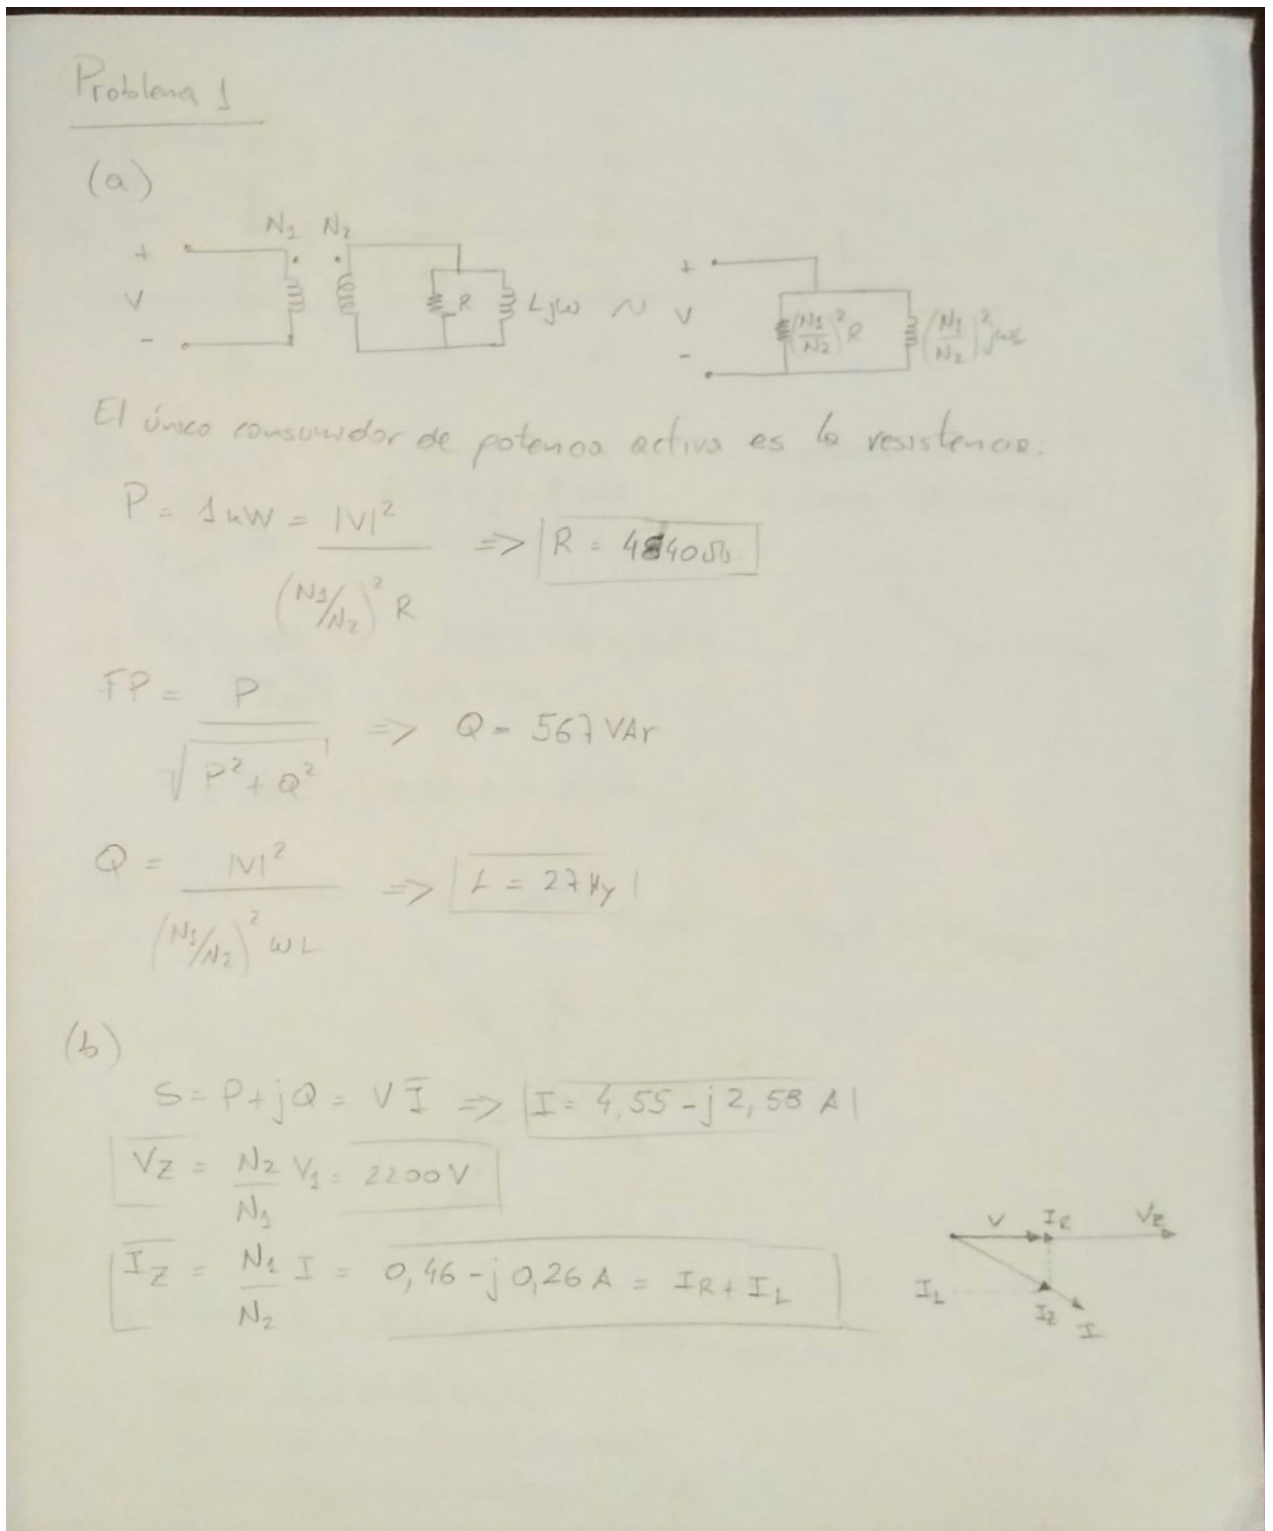 Problema 1
(a)
N1 N2
+ V -
R Ljω ~
+ V -
(N1/N2)² R (N1/N2)² jωL
El único consumidor de potencia activa es la resistencia.
P = 1kW = |V|² / ((N1/N2)² R) => R = 4840Ω
FP = P / √(P² + Q²) => Q = 567 VAr
Q = |V|² / ((N1/N2)² ωL) => L = 27 Hy
(b)
S = P + jQ = V Ī => I = 4,55 - j 2,58 A
VZ = N2/N1 V1 = 2200V
IZ = N1/N2 I = 0,46 - j 0,26 A = IR + IL
V IR VZ
IL IZ I